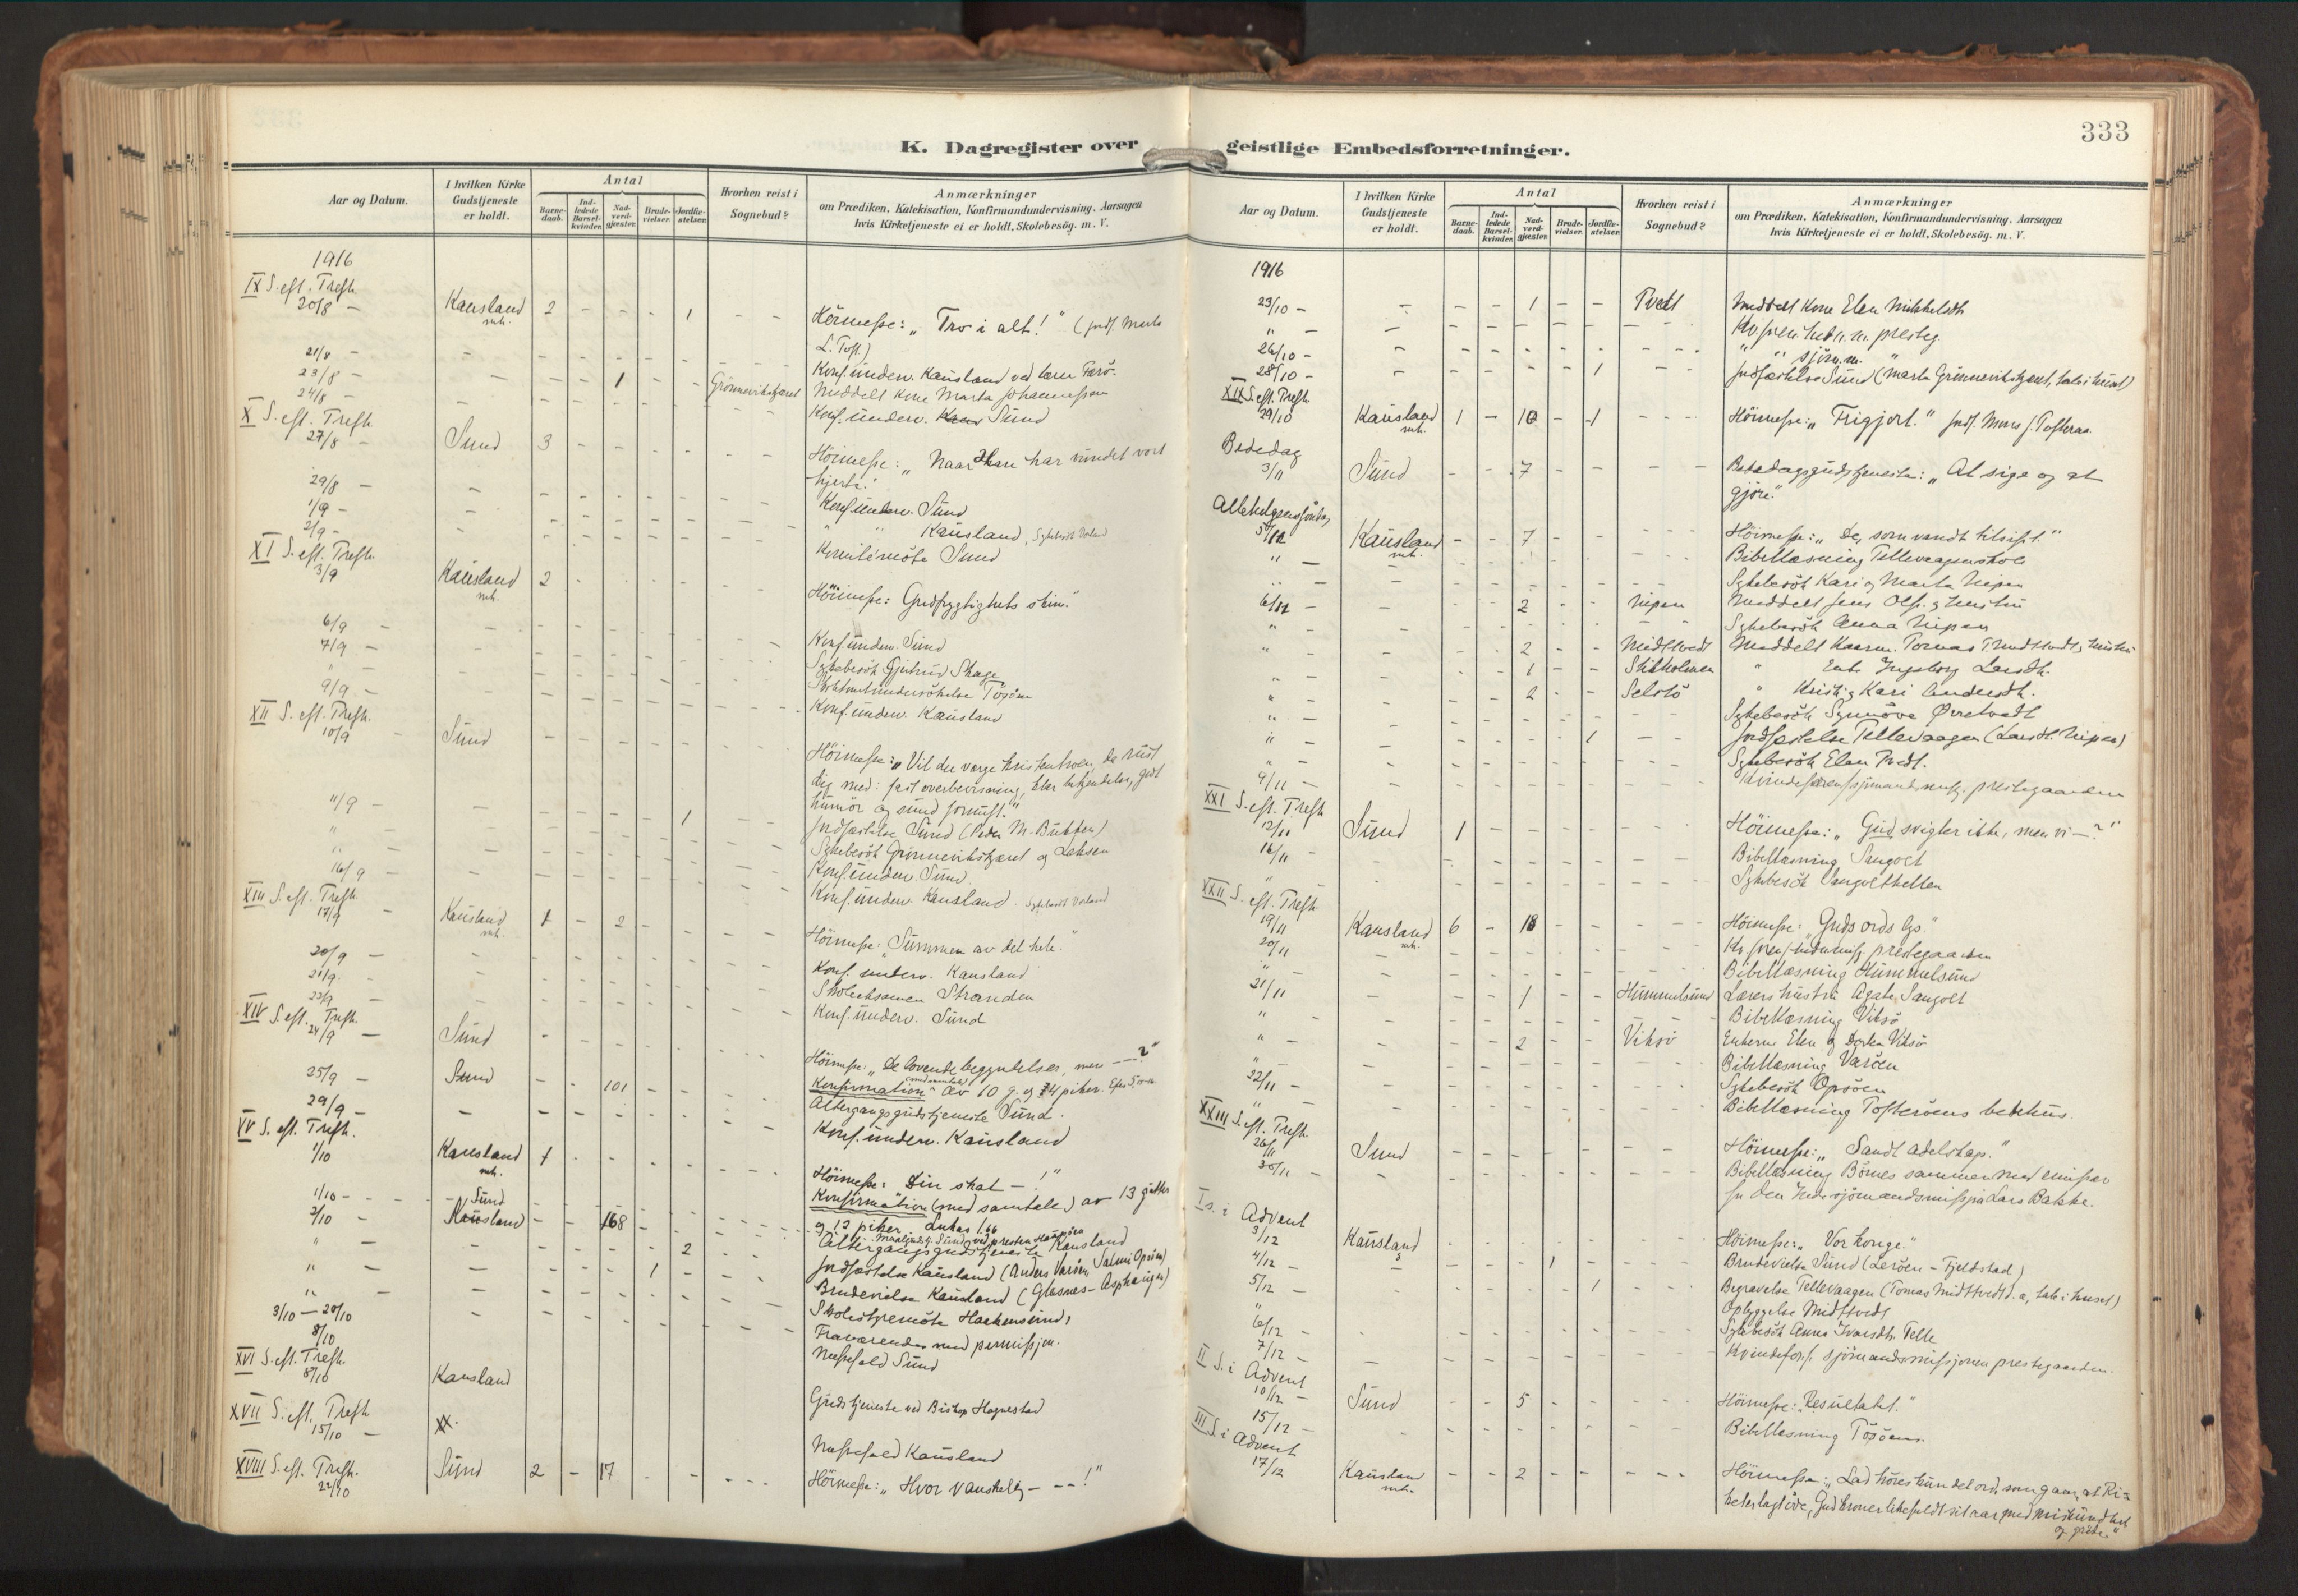 K. Dagregister over
Aar og Datum.
I hvilken Kirke Gudstjeneste er holdt.
Antal
Barne-daab.
Ind-ledede Barsel-kvinder.
Nad-verd-gjester.
Brude-vielser.
Jordfæ-stelser.
Hvorhen reist i Sognebud?
Anmærkninger
om Prædiken, Katekisation, Konfirmandundervisning, Aarsagen
hvis Kirketjeneste ei er holdt, Skolebesög. m. V.
1916
IX S. eft. Trefh.
20/8 - Kausland 2 - - - 1 - - Høimesse: "Tro i alt!" (Jordf. Marta
L. Toft.)
21/8 - Konf. underv. Kausland ved lærer Færö.
23/8 - 1 - - Grönnevikskjæret Meddelt kone Marta Johannessen
24/8 - Konf. underv. Sund
X S. eft. Trefh.
27/8 - Sund 3 - - - - Høimesse: "Naar Han har vundet vort
hjerte."
29/8 - Konf. underv. Sund
1/9 - " " Kausland, Sykebesök
2/9 - Komitémöte Sund
XI S. eft. Trefh.
3/9 Kausland 2 Höimesse: Gudfrygtighets skin."
6/9 - Konf. underv. Sund
7/9 - Sykebesök Gjertrud Skage
" -
9/9 - Konf. underv. Kausland
XII S. eft. Trefh.
10/9 - Sund Höimesse: "Vil du verge kristentroen, da rust
dig med: fast overbevisning, klar bekjendelse, godt
humör og sund fornuft."
11/9 - 1 Jordfæstelse Sund (Peder M. Bukken)
" Sykebesök Grönnevikskjæret og
" Konf. underv. Sund
16/9 - Konf. underv. Kausland. Sykebesök
XIII S. eft. Trefh.
17/9 - Kausland 1 - 2 Höimesse: "Summen av det hele."
20/9 - Konf. underv. Kausland
21/9 - Skoleeksamen Stranden
23/9 - Konf. underv. Sund
XIV S. eft. Trefh.
24/9 - Sund Höimesse: "De lovende begyndelser, men --?"
Konfirmation (med samtale) av 10 g. og 14 piker.
25/9 - Sund - - 101 - - Altergangsgudstjeneste Sund.
29/9 - Konf. underv. Kausland
XV S. eft. Trefh.
1/10 Kausland 1 Höimesse: Din skat - !"
1/10 - - - - Sund Konfirmation (med samtale) av 13 gutter
og 12 piker. Lukas 1.66
2/10 - Kausland - - 168 - Altergangsgudstjeneste Kausland
" - 2 Jordfæstelse Kausland (Anders Varöen, Salmine Opsöen)
" - 1 Brudevielse Kausland (Glesnes - Asphaugen)
" - Skolestyremöte Haakensund
3/10 - 20/10 Fraværende med permissjon.
8/10 Messefald Sund
XVI S. eft. Trefh.
8/10 Kausland Gudstjeneste ved Biskop Hognestad
XVII S. eft. Trefh.
15/10 - Messefald Kausland
XVIII S. eft. Trefh.
22/10 Sund 2 - 17 - - - - - Höimesse: "Hvor vanskelig - --!"
geistlige Embedsforretninger.
333
Aar og Datum.
I hvilken Kirke Gudstjeneste er holdt.
Antal
Barne-daab.
Ind-ledede Barsel-kvinder.
Nad-verd-gjester.
Brude-vielser.
Jordfæ-stelser.
Hvorhen reist i Sognebud?
Anmærkninger
om Prædiken, Katekisation, Konfirmandundervisning, Aarsagen
hvis Kirketjeneste ei er holdt, Skolebesög. m. V.
1916
23/10 - - - - 1 - - Tvedt Meddelt kone Elen Mikkelsdt.
" - Kv.foren. presteg.
26/10 - " " sjöm.m. "
28/10 - 1 Jordfæstelse Sund (Marta Grönnevikskjæret, tale i huset)
XIX S. eft. Trefh.
29/10 Kausland 1 - 10 - 1 Höimesse: "Frigjort." Jordf. Mons J. Tofteraa.
Bededag
3/11 Sund - - 7 - - - - Bededagsgudstjeneste: "At sige og at
gjöre."
Allehelgenssöndag
5/11 Kausland - - 7 - - Höimesse: "De, som vandt tilsidst."
" - Bibellæsning Tellevaagen skole
" - Sykebesök Kari og Marta Nipen
6/11 - 2 - - Nipen Meddelt Jens Ols. og hustru
" Sykebesök Anna Nipen
" 2 - - Midttvedt Meddelt Kaarm. Tomas Midttvedt og hustru
" 1 - - Stikholmen " Enke Ingeborg Larsdt.
" 2 - - Selstö " Kristi og Kari Andersdt.
" Sykebesök Synnöve Örretvedt
" 1 Jordfæstelse Tellevaagen (Lars H. Nipen)
" Sykebesök Elen Tvedt.
9/11 - Kvindeforen. sjömandsmiss. prestegaarden
XXI S. eft. Trefh.
12/11 Sund 1 Höimesse: "Gud svigter ikke, men vi -?"
16/11 - Bibellæsning Sangolt
" Sykebesök Sangolthellen
XXII S. eft. Trefh.
19/11 Kausland 6 - 18 Höimesse: "Guds ords lys."
20/11 Kv.foren. prestegaarden
" Bibellæsning Hummelsund
21/11 1 - - Hummelsund Lærers hustru Agate Sangolt
" Bibellæsning Viksö
" 2 - - Viksö Enkerne Elen og Dorte Viksö
" Bibellæsning Varöen
22/11 - Sykebesök Opsöen
" Bibellæsning Tofteröens bedehus.
XXIII S. eft. Trefh.
26/11 Sund Höimesse: "Sandt adelskap."
30/11 - Bibellæsning Börnes sammen med emissær
for den Indre sjömandsmissjon Lars Bakke.
I s. i Advent
3/12 Kausland Höimesse: "Vor konge."
4/12 - 1 Brudevielse Sund (Leröen - Fjeldstad)
5/12 - 1 Begravelse Tellevaagen (Tomas Midttvedt d. a., tale i huset)
" Opbyggelse Midttvedt
6/12 - Sykebesök Anna Ivarsdt. Telle
7/12 - Kvindefor. f. sjömandsmissjonen prestegaarden.
II S. i Advent
10/12 - Sund - - 5 Höimesse: "Resultatet."
15/12 - Bibellæsning Tösöen.
III S. i Advent
17/12 Kausland - - 2 - - - - - Höimesse: "Lad höres kun det ord, som gaar, at
Gud kroner sit aar med miskundhet